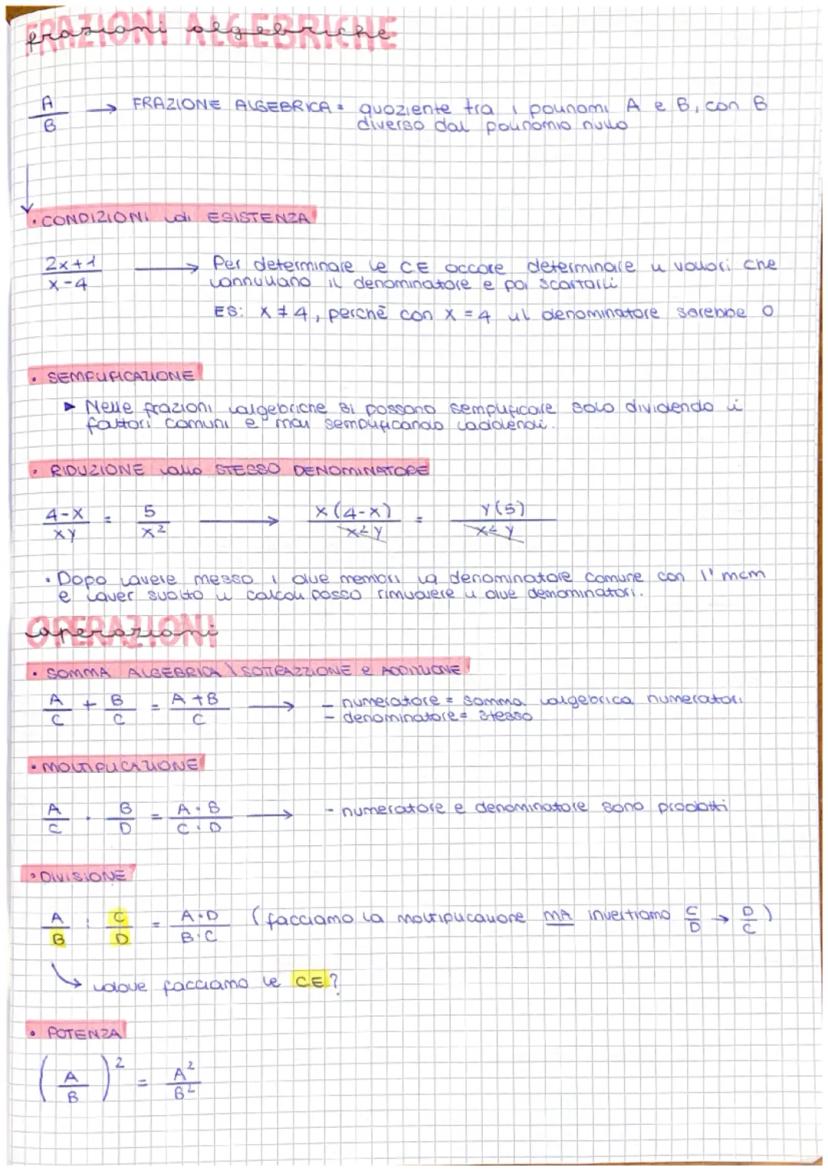 frazioni algebriche
A/B → FRAZIONE ALGEBRICA = quoziente tra i polinomi A e B, con B
diverso dal polinomio nullo
• CONDIZIONI di ESISTENZA
2x+1/x-4 → Per determinare le CE occore determinare i valori che
annullano il denominatore e poi scartarli
ES: x ≠ 4, perchè con x = 4 il denominatore sarebbe 0
• SEMPLIFICAZIONE
▶ Nelle frazioni algebriche si possono semplificare solo dividendo i
fattori comuni e mai semplificando addendi.
• RIDUZIONE allo STESSO DENOMINATORE
4-x/xy = 5/x² → x(4-x)/x²y = y(5)/x²y
• Dopo avere messo i due membri a denominatore comune con l'mcm
e aver svolto i calcoli posso rimuovere i due denominatori.
operazioni
• SOMMA ALGEBRICA \ SOTTRAZZIONE e ADDIZIONE
A/C + B/C = A+B/C → - numeratore = somma algebrica numeratori
- denominatore = stesso
• MOLTIPLICAZIONE
A/C · B/D = A·B/C·D → - numeratore e denominatore sono prodotti
• DIVISIONE
A/B : C/D = A·D/B·C (facciamo la moltiplicazione MA invertiamo C/D → D/C)
dove facciamo le CE?
• POTENZA
(A/B)² = A²/B²